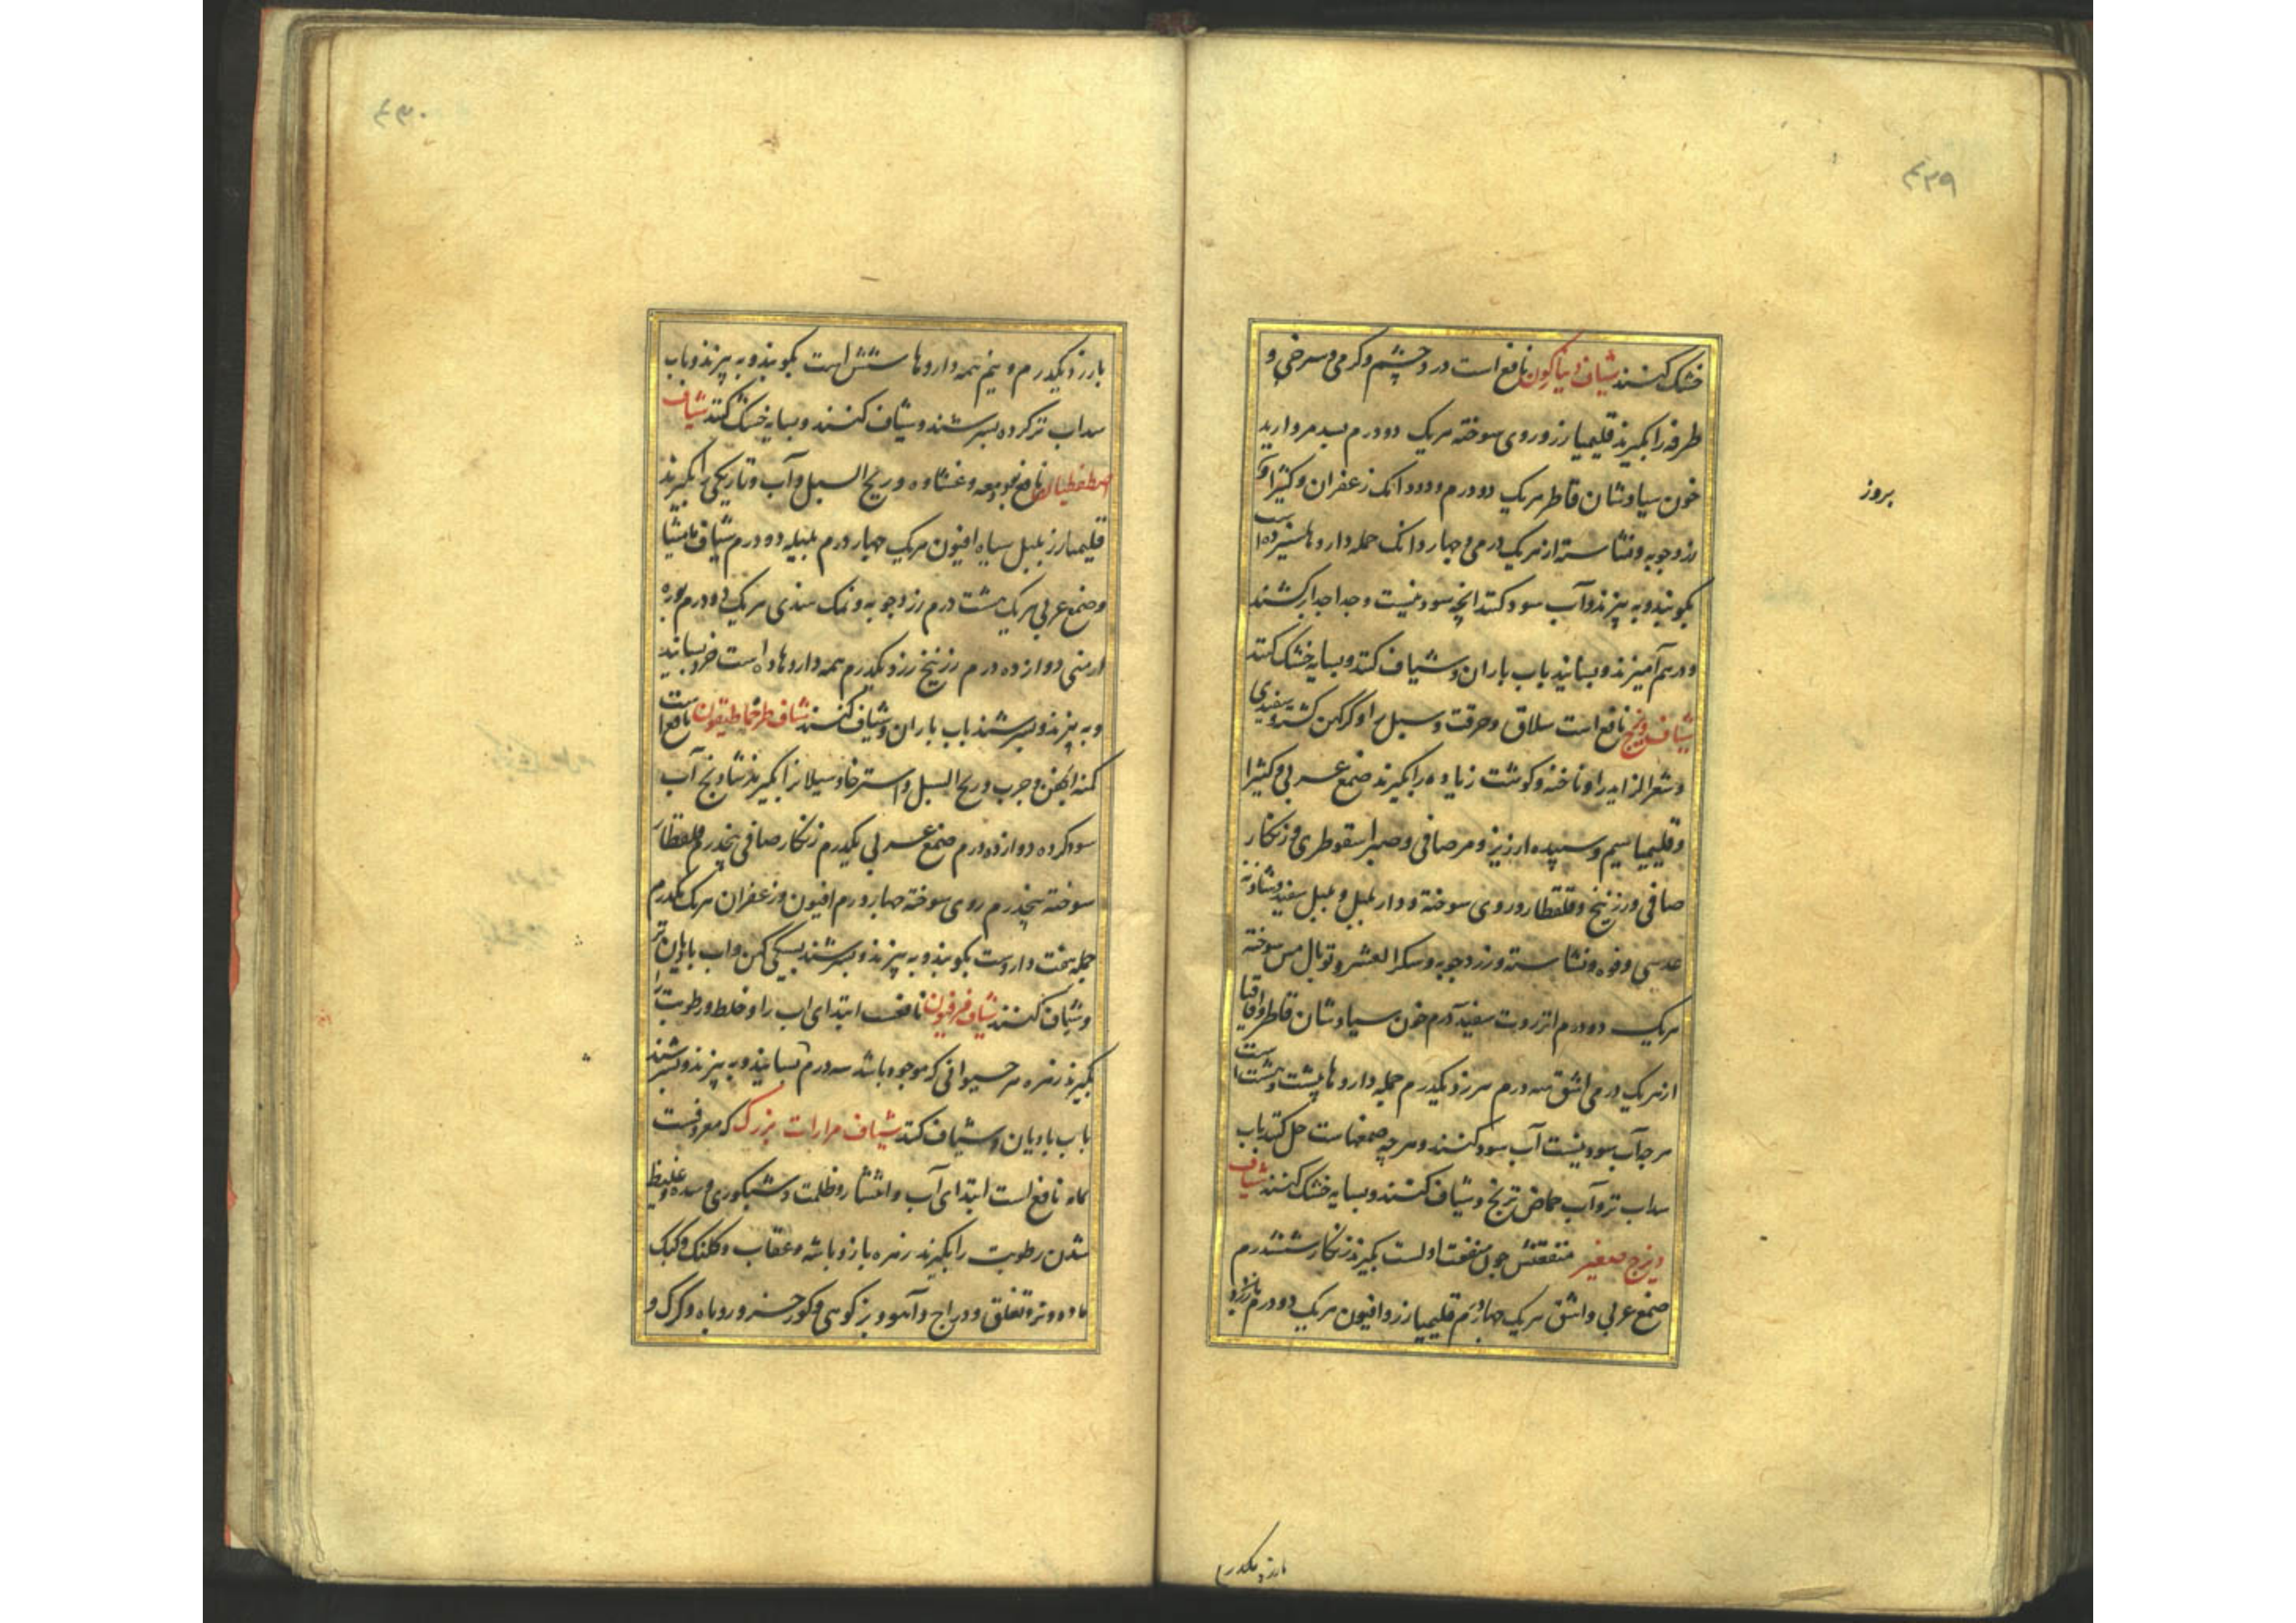 ۴۲۹
خشک کنند شیاف دیناکون نافع است درد چشم و کرمی و سرخی و
طرفه را بکیرند قلیمیا زر و روی سوخته هریک دو درم بسد مروارید
خون سیاوشان قاطر هریک دو درم و دو دانک زعفران و کثیرا و
زردچوبه و نشاسته از هریک درمی و چهار دانک جمله داروها سیزده است
بکوبند و به پیزند و آب سود کنند انچه سودنیست و جدا جدا بر کشند
و درهم آمیزند و بسایند باب باران و شیاف کنند و بسایه خشک کنند
شیاف دیزج نافع است سلاق و حرقت و سبل را و کر کهن کشته و سفیدی
و شعر الزاید را و ناخنه و کوشت زیاده را بکیرند صمغ عربی و کثیرا
و قلیمیا سیم و سپیده ارزیز و مر صافی و صبر اسقوطری و زنکار
صافی و زرنیخ و قلقطار و روی سوخته و دار بلبل و بلبل سفید و شادنه
عدسی و فوه و نشاسته و زردچوبه و سکر العشر و توبال مس سوخته
هریک دو درم انزروت سفید درم خون سیاوشان قاطر و اقاقیا
از هریک درمی اشق سه درم هرزد یکدرم جمله داروها بیست و هشت است
هرچه آب سودنیست آب سود کنند و هرچه صمغهاست حل کنند باب
سداب تر و آب حماض ترنج و شیاف کنند و بسایه خشک کنند شیاف
دیزج صغیر منفعتش چون منفعت اولست بکیرند زنکار شش درم
صمغ عربی و اشق هریک چهار درم قلیمیا زر و افیون هریک دو درم بارزد
بارزد یکدرم
بروز
۴۳۰
بارزد یکدرم و نیم همه داروها شش است بکوبند و به پیزند و باب
سداب تر کرده بسرشند و شیاف کنند و بسایه خشک کنند شیاف
نافع بود دمعه و غشاوه و ریح السبل و آب و تاریکی را بکیرند
قلیمیا زر بلبل سیاه افیون هریک چهار درم بلبیله دو درم شیاف مامیثا
و صمغ عربی هریک هشت درم زردچوبه و نمک هندی هریک دو درم بوره
ارمنی دوازده درم زرنیخ زرد یکدرم همه داروها ده است خرد بسایند
و به پیزند و بسرشند باب باران و شیاف کنند شیاف طرخماطیقون نافع است
کنه اکهن و جرب و ریح السبل و استرخا و سیلان را بکیرند شادنج آب
سود کرده دوازده درم صمغ عربی یکدرم زنکار صافی پنجدرم قلقطار
سوخته پنجدرم روی سوخته چهار درم افیون و زعفران هریک یکدرم
جمله هفت داروست بکوبند و به پیزند و بسرشند بسیکی کهن و اب بادیان تر
و شیاف کنند شیاف فرفیون نافعست ابتدای اب را و خلط و رطوبت را
بکیرند زهره هر حیوانی که موجود باشد سه درم بسایند و به پیزند و بسرشند
باب بادیان و شیاف کنند شیاف مرارات بزرک که معروفست
نافع است ابتدای آب و انتشار و ظلمت و شبکوری و سده و غلیظ
شدن رطوبت را بکیرند زهره باز و باشه و عقاب و کلنک و کبک
ماده و نر و تغلق و دراج و آهو و بز کوهی و کور خر و روباه و کرک و